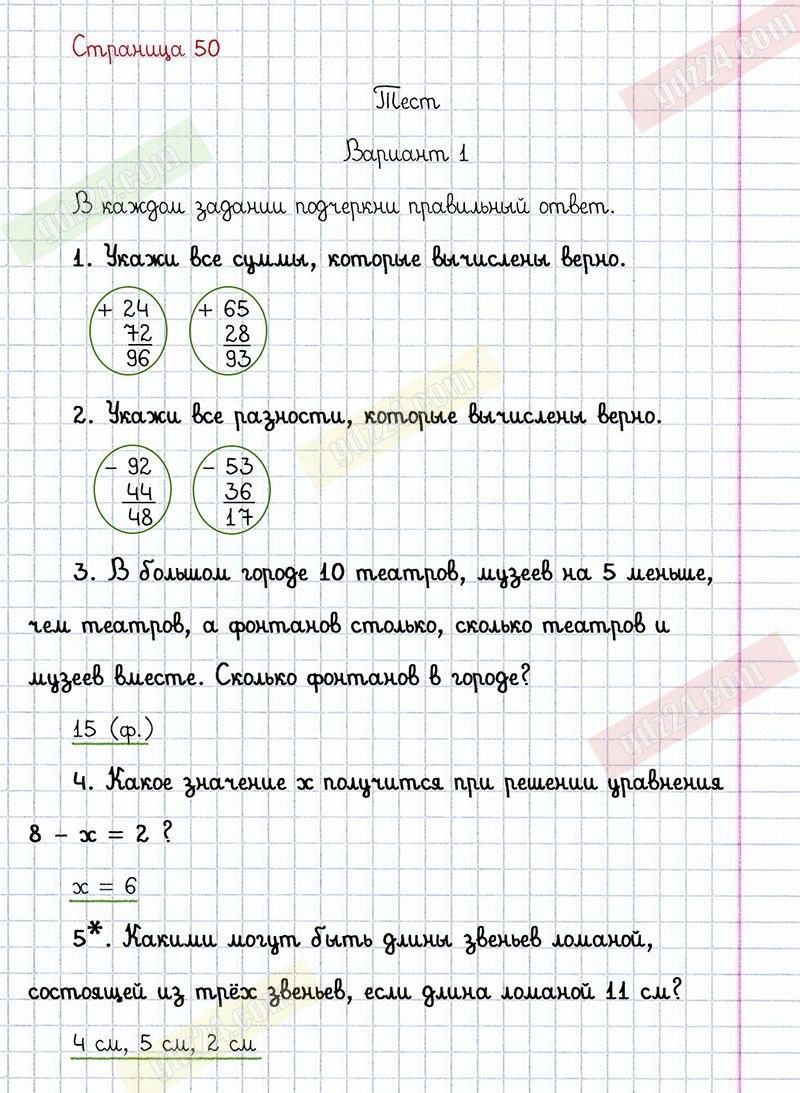 Страница 50
gdz24.com
Тест
Вариант 1
gdz24.com
В каждом задании подчеркни правильный ответ.
1. Укажи все суммы, которые вычислены верно.
+ 24 + 65
72 28
96 93
gdz24.com
2. Укажи все разности, которые вычислены верно.
- 92 - 53
44 36
48 17
3. В большом городе 10 театров, музеев на 5 меньше,
чем театров, а фонтанов столько, сколько театров и
музеев вместе. Сколько фонтанов в городе?
gdz24.com
15 (ф.)
4. Какое значение х получится при решении уравнения
8 - х = 2 ?
х = 6
5*. Какими могут быть длины звеньев ломаной,
состоящей из трёх звеньев, если длина ломаной 11 см?
gdz24.com
4 см, 5 см, 2 см